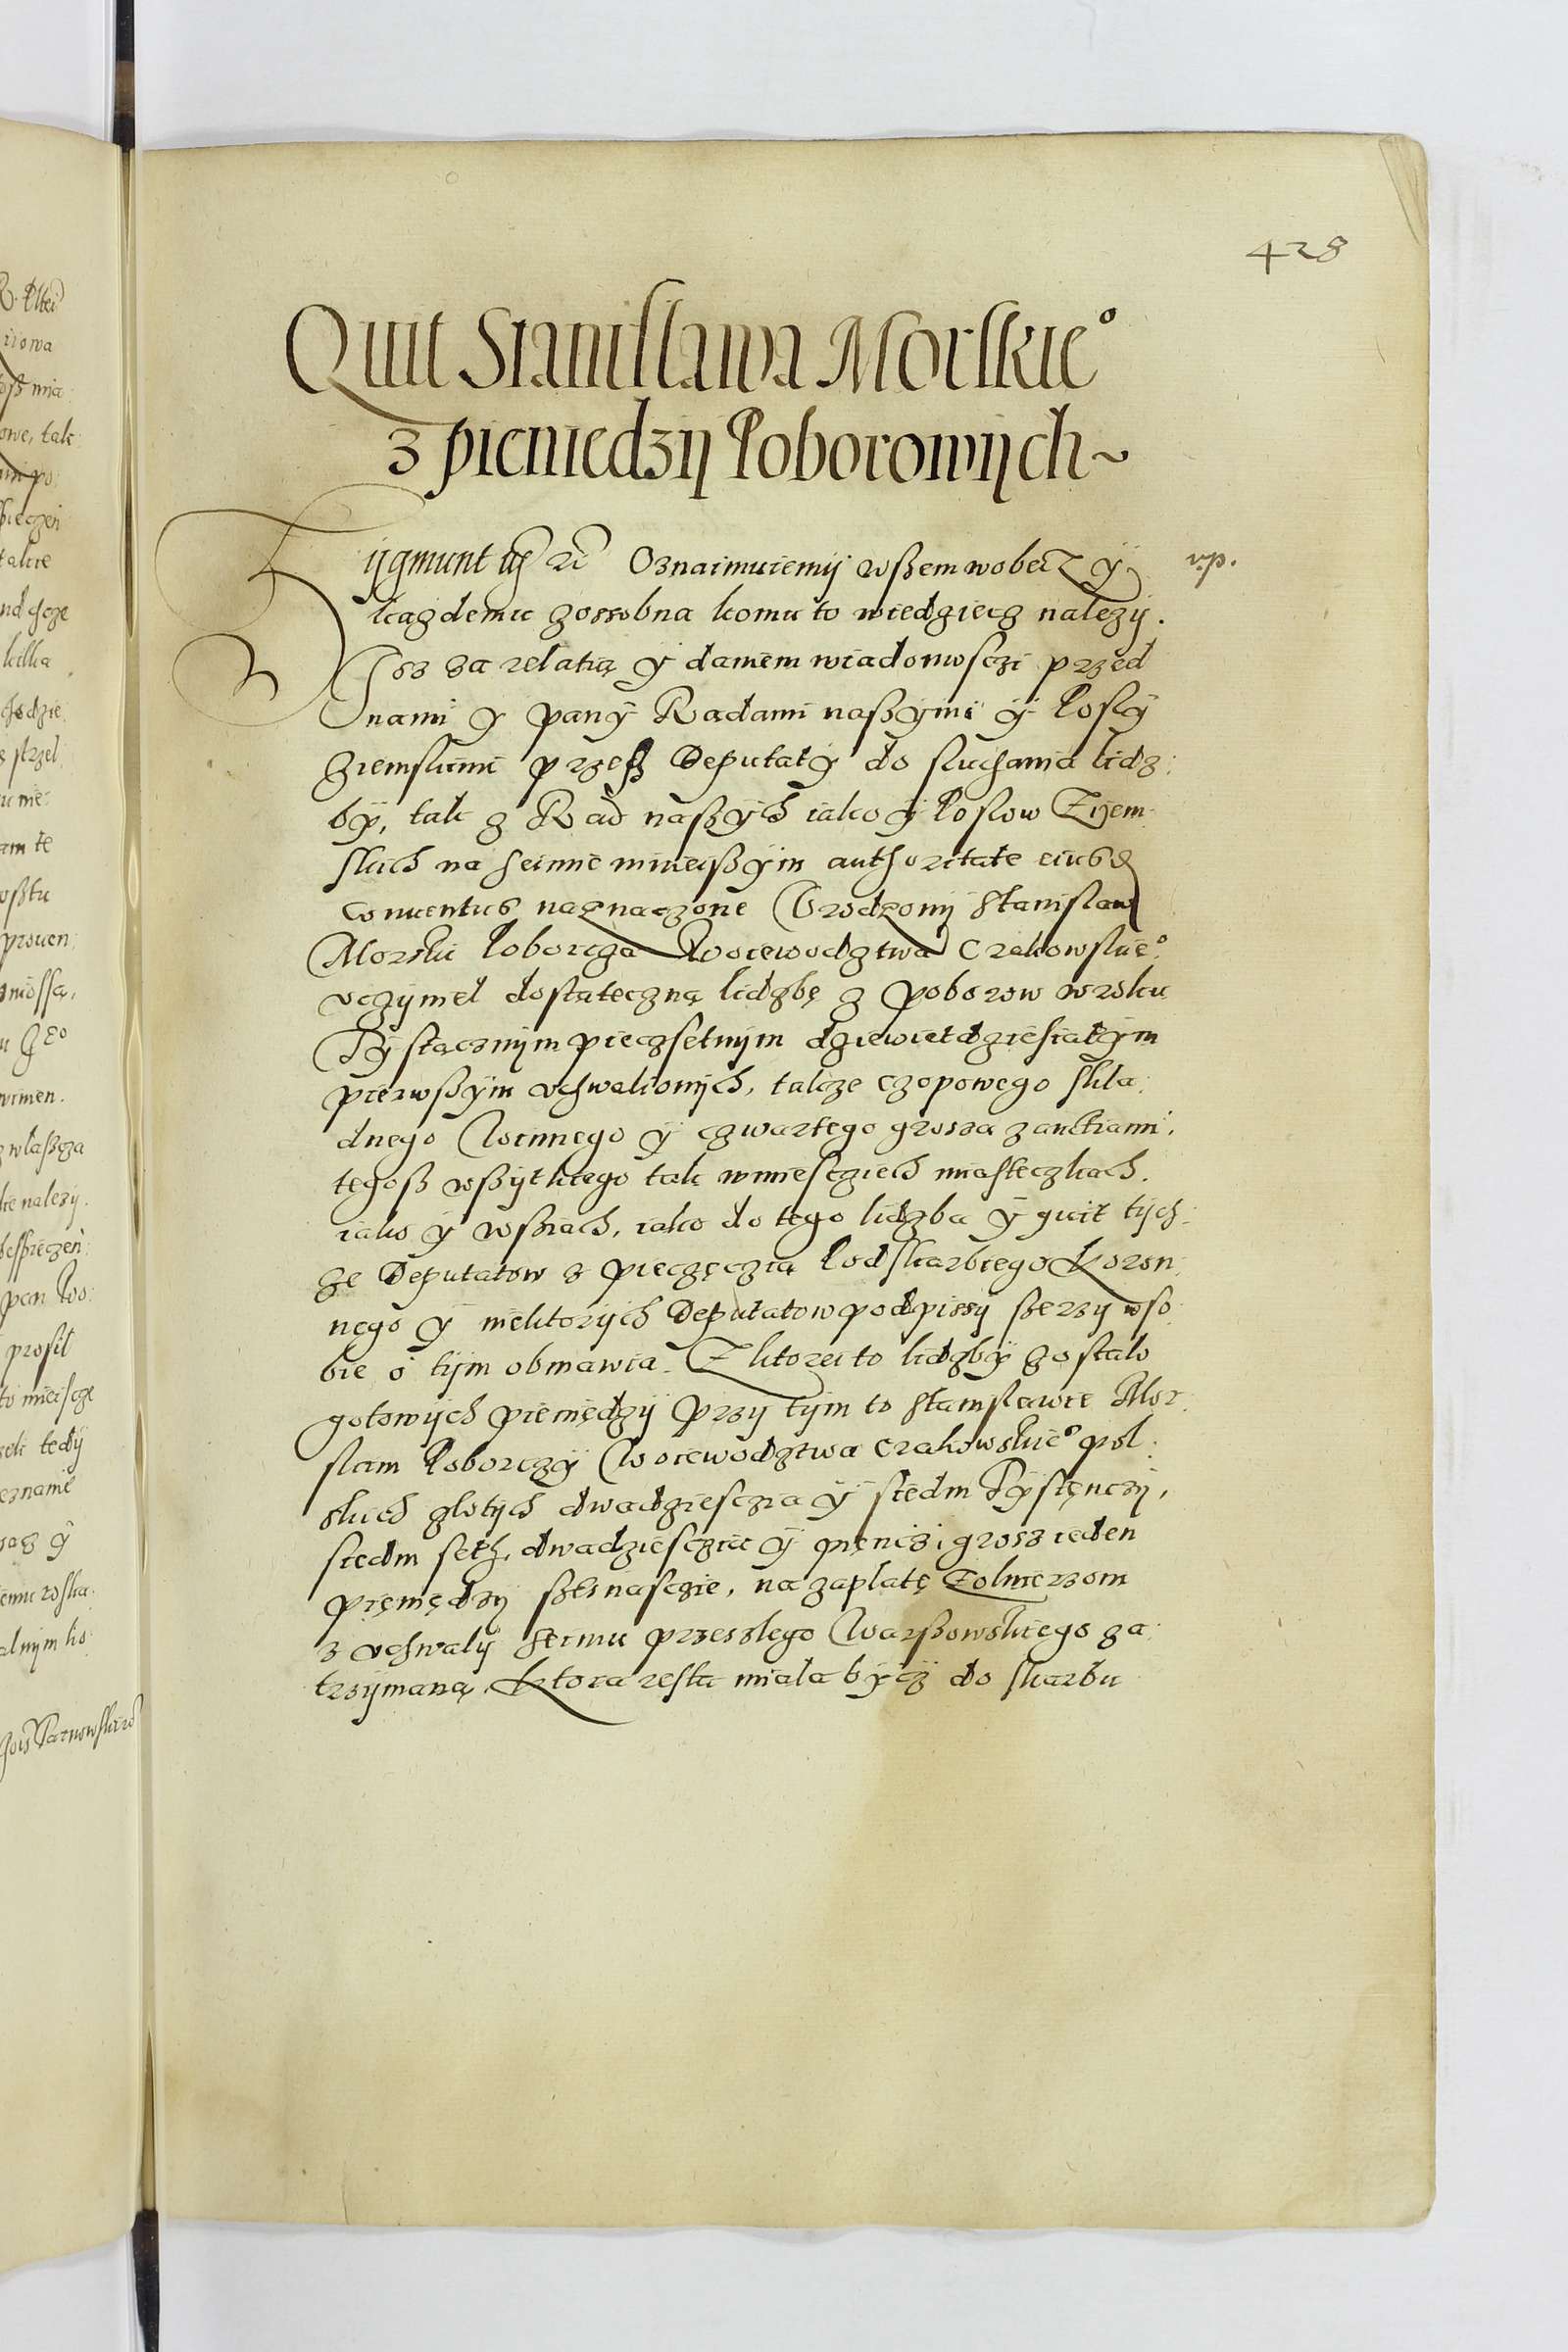 428
Quit Stanislawa Morskie°
z pieniedzy Poborowych~
Zygmunt etc. Oznaimuiemy wßem wobecz y
kazdemu zossobna komu to wiedziecz nalezy.
Isz za relatią y daniem wiadomosczi przed
nami y pany Radami naßymi y Posly
ziemskimi przeß Deputaty do sluchania lidz:
by, tak z Rad naßych iako y Poslow Zyem
skich na seimie ninieißym authoritate eiusd
conuentus naznaczone Urodzony Stanislaw
Morski Poborcza Woiewodztwa Crakowskie°.
uczyniel dostateczną lidzbę z poborow w roku
Tysiacznym pieczsetnym dziewietdziesiatym
pierwßym uchwalionych, takze czopowego skła:
dnego Woinnego y czwartego grosza z auctiami,
tegoß wßytkiego tak w miesciech miasteczkach.
iako y wßiach, iako do tego lidzba y quit tych:
ze Deputatow z pieczęczią Podskarbiego Koron:
nego y niektorych Deputatow podpissy szerzy w so:
bie o tym obmawia. Z ktorei to lidzby zostalo
gotowych pieniędzy przy tym to Stanislawie Mor:
skim Poborczy Woiewodztwa Crakowskie° pol:
skich zlotych dwadziesczia y siedm Tysięnczy,
siedm seth, dwadziesczia y pięncz, grosz ieden
pięniędzy szesnasczie, na zaplatę Zolnierzom
z uchwaly seimu przeszlego Warßowskiego za:
trzymaną. Ktora resta miala bycz do skarbu